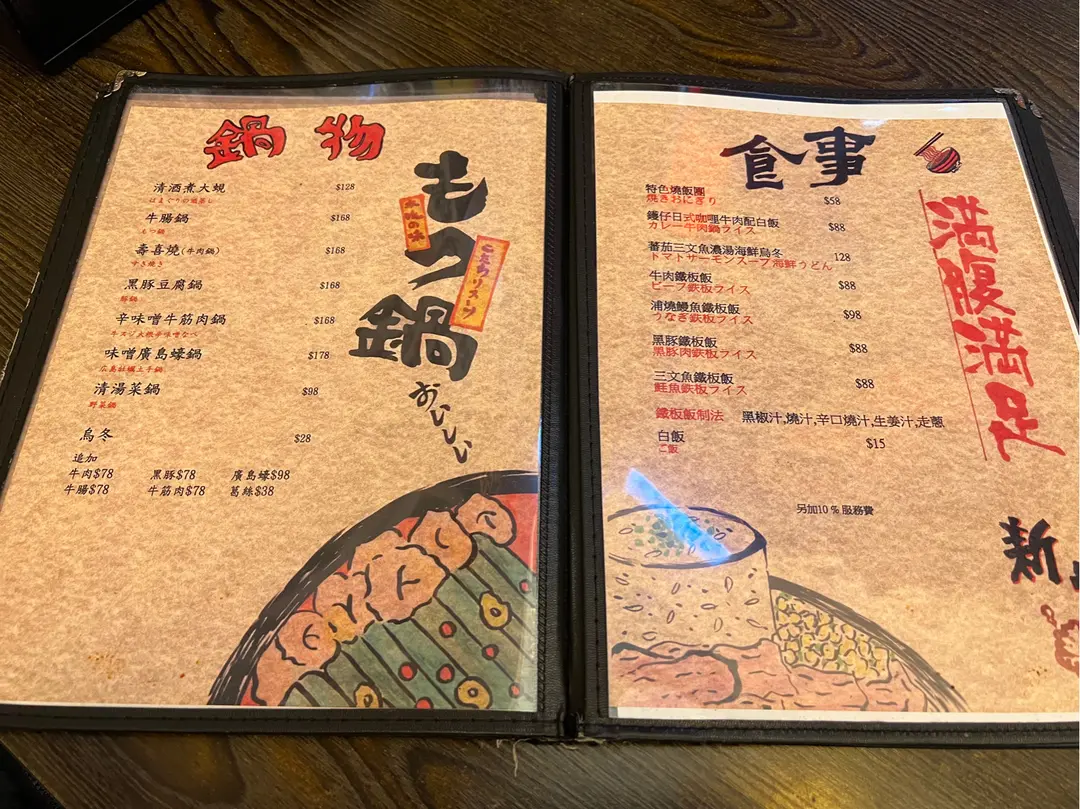 鍋物
清酒煮大蜆 $128
はまぐりの酒蒸し
牛腸鍋 $168
もつ鍋
壽喜燒(牛肉鍋) $168
すき焼き
黑豚豆腐鍋 $168
豚鍋
辛味噌牛筋肉鍋 $168
牛スジ大根辛味噌なべ
味噌廣島蠔鍋 $178
広島牡蠣土手鍋
清湯菜鍋 $98
野菜鍋
烏冬 $28
追加
牛肉$78 黑豚$78 廣島蠔$98
牛腸$78 牛筋肉$78 葛絲$38
もつ鍋
おいしい
食事
特色燒飯團 $58
焼きおにぎり
鑊仔日式咖喱牛肉配白飯 $88
カレー牛肉鍋ライス
蕃茄三文魚濃湯海鮮烏冬 128
トマトサーモンスープ海鮮うどん
牛肉鐵板飯 $88
ビーフ鉄板ライス
浦燒鰻魚鐵板飯 $98
うなぎ鉄板ライス
黑豚鐵板飯 $88
黒豚肉鉄板ライス
三文魚鐵板飯 $88
鮭魚鉄板ライス
鐵板飯制法 黑椒汁,燒汁,辛口燒汁,生姜汁,走蔥
白飯 $15
ご飯
另加10％服務費
満腹満足
新